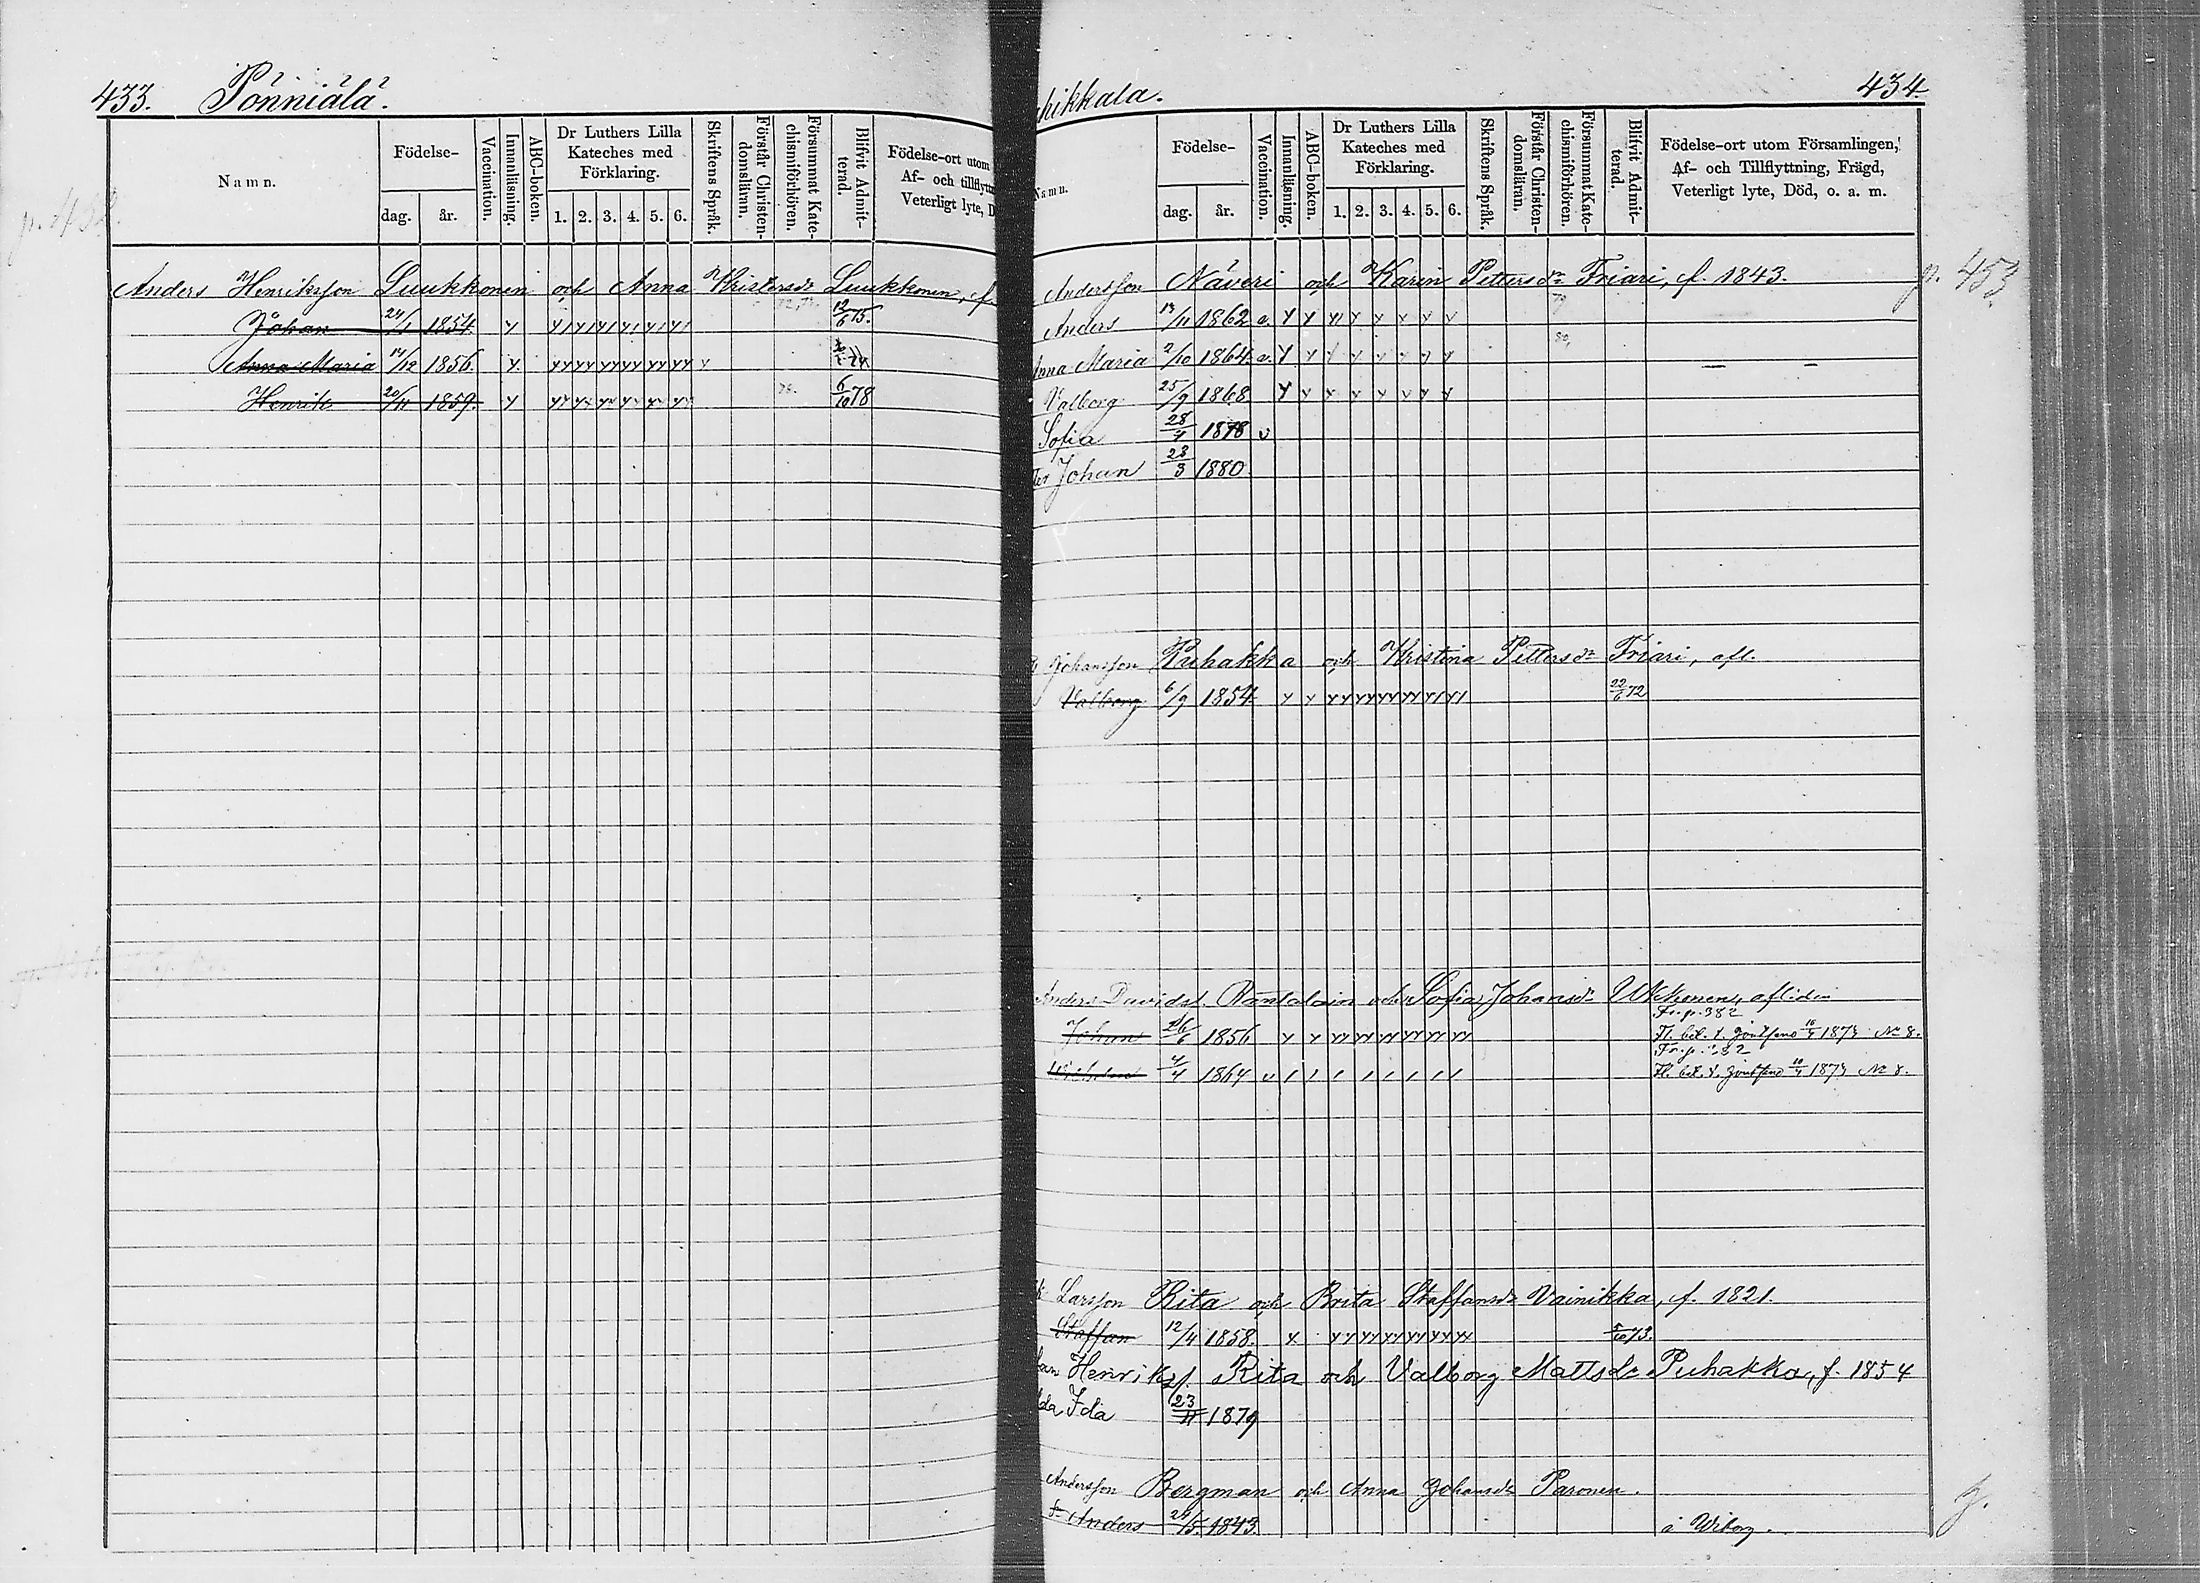 433. Pönniälä.
Namn.
Födelse-
dag. år.
Vaccination.
Innanläsning.
ABC-boken.
Dr Luthers Lilla
Kateches med
Förklaring.
1. 2. 3. 4. 5. 6.
Skriftens Språk.
Förstår Christen-
domsläran.
Försummat Kate-
chismiförhören.
Blifvit Admit-
terad.
Födelse-ort utom
Af- och tillflytt
Veterligt lyte, D
Anders Henriksson Luukkonen och Anna Kristersdr Luukkonen, f
Johan 24/1 1854. 12/6 75.
Anna Maria 14/12 1856. 74
Henrik 20/11 1859. 78. 6/10 78
hikkala. 434.
Namn.
Födelse-
dag. år.
Vaccination.
Innanläsning.
ABC-boken.
Dr Luthers Lilla
Kateches med
Förklaring.
1. 2. 3. 4. 5. 6.
Skriftens Språk.
Förstår Christen-
domsläran.
Försummat Kate-
chismiförhören.
Blifvit Admit-
terad.
Födelse-ort utom Församlingen,
Af- och Tillflyttning, Frägd,
Veterligt lyte, Död, o. a. m.
Andersson Näveri och Karin Pettersdr Friari, f. 1843. p. 453
Anders 1862 79
Anna Maria 2/10 1864 80,
Valborg 25/9 1868
Sofia 28/4 1878 v
Johan 28/3 1880
Johansson Puhakka och Kristina Pettersdr Friari, afl.
Valborg 6/9 1854 22/6 72
Anders Davidss. Rantalain och Sofia Johansdr Ukkonen, afliden
Fr. p. 382
Johan 26/6 1856 Fl. bet. t. 1873 No 8.
Fr. p. 382
Wilhelm 4/4 1864 Fl. bet. t. 1873 No 8.
Larsson Rita och Brita Staffansdr Vainikka, f. 1821.
Staffan 12/4 1858. 73.
Henrikss. Rita och Valborg Mattsdr Puhakka, f. 1854
da Ida 23/11 1879
Andersson Bergman och Anna Johansdr Paronen.
Anders 24/5 1843. i Wiborg.